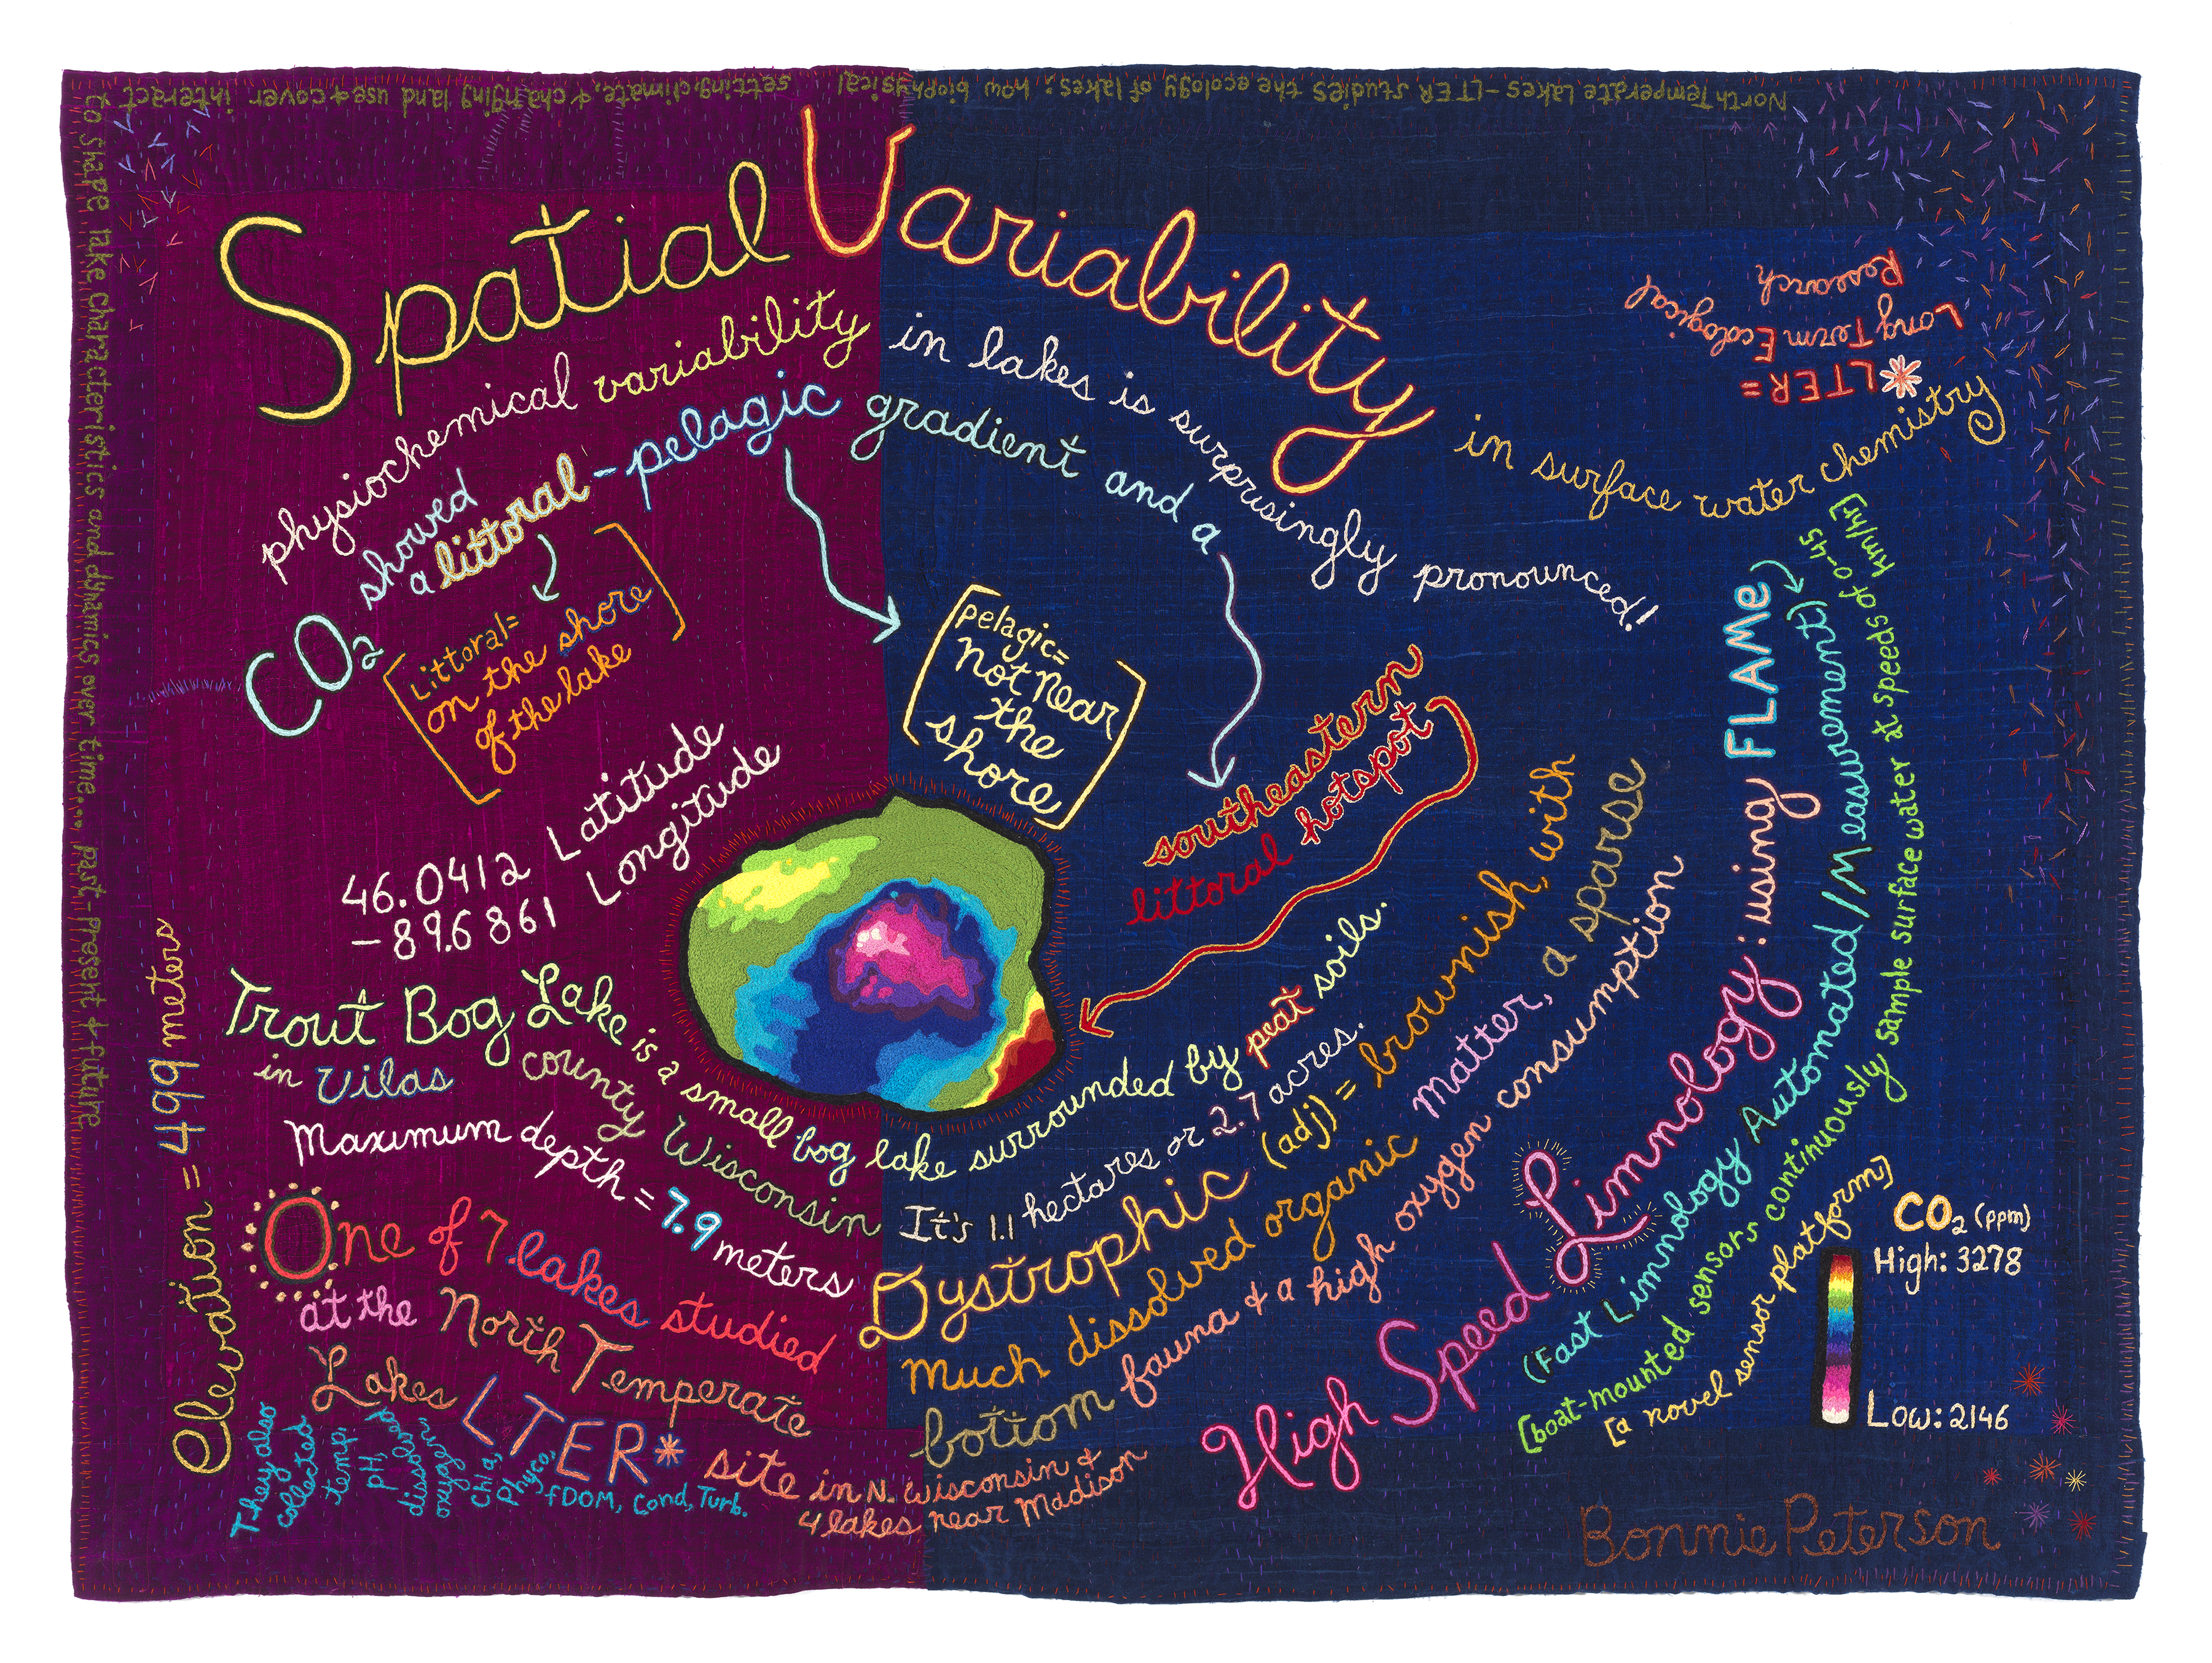 North Temperate Lakes-LTER studies the ecology of lakes: how biophysical setting, climate, & changing land use & cover interact
to shape lake characteristics and dynamics over time... past-present & future
Spatial Variability
in surface water chemistry
physiochemical variability in lakes is surprisingly pronounced!
CO2 showed
a littoral-pelagic gradient and a
southeastern
littoral hotspot
[Littoral=
on the shore
of the lake]
[pelagic=
not near
the
shore]
*LTER=
Long Term Ecological
Research
46.0412 Latitude
-89.6861 Longitude
Elevation = 499 meters
Trout Bog Lake is a small bog lake surrounded by peat soils.
in Vilas county Wisconsin
It's 1.1 hectares or 2.7 acres.
Maximum depth = 7.9 meters
Dystrophic (adj) = brownish, with
much dissolved organic matter, a sparse
bottom fauna & a high oxygen consumption
One of 7 lakes studied
at the North Temperate
Lakes LTER* site in N. Wisconsin &
4 lakes near Madison
They also
collected
temp.
pH,
dissolv.
oxygen,
Chl a,
Phyco,
fDOM, Cond, Turb.
High Speed Limnology: using FLAMe
(Fast Limnology Automated/Measurement)
[boat-mounted sensors continuously sample surface water at speeds of 0-45
km/hr]
[a novel sensor platform]
CO2 (ppm)
High: 3278
Low: 2146
Bonnie Peterson